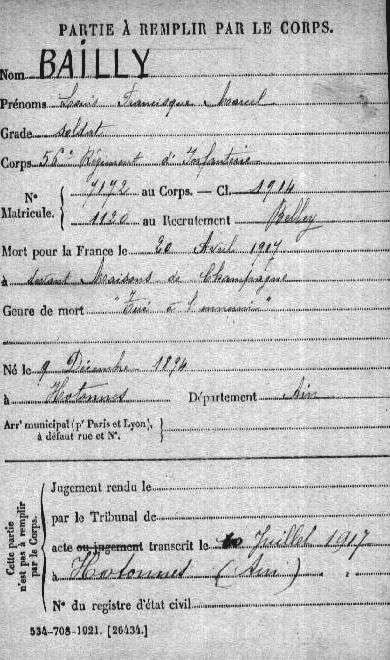 PARTIE À REMPLIR PAR LE CORPS.
Nom BAILLY
Prénoms Louis Francisque Marcel
Grade soldat
Corps 56e Régiment d'Infanterie
N° Matricule. { 7172 au Corps. — Cl. 1914
1120 au Recrutement Belley
Mort pour la France le 20 Avril 1917
à devant Maisons de Champagne
Genre de mort "Tué à l'ennemi"
Né le 9 Décembre 1894
à Hotonnes Département Ain
Arr' municipal (p' Paris et Lyon),
à défaut rue et N°.
Cette partie n'est pas à remplir par le Corps.
Jugement rendu le
par le Tribunal de
acte ou jugement transcrit le Juillet 1917
à Hotonnes (Ain)
N° du registre d'état civil
534-708-1921. [26434.]